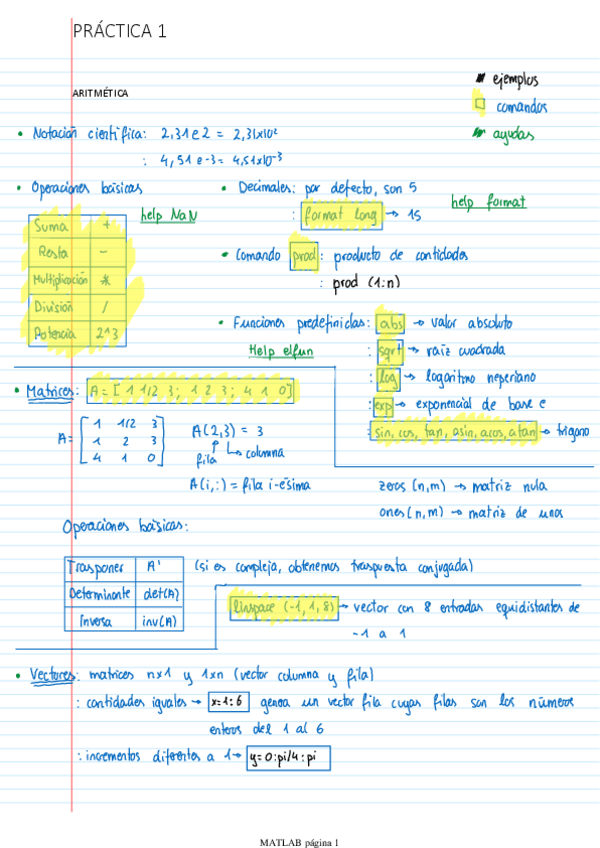 PRÁCTICA 1
ejemplos
comandos
ayudas
ARITMÉTICA
• Notación científica: 2,31e2 = 2,31x10²
: 4,51 e-3 = 4,51x10⁻³
• Operaciones básicas
help NaN
Suma +
Resta -
Multiplicación *
División /
Potencia 2^3
• Decimales: por defecto, son 5
: format long → 15
help format
• Comando prod: producto de cantidades
: prod (1:n)
• Funciones predefinidas: abs → valor absoluto
Help elfun
: sqrt → raíz cuadrada
: log → logaritmo neperiano
: exp → exponencial de base e
sin, cos, tan, asin, acos, atan → trigono
• Matrices: A = [ 1 1/2 3; 1 2 3; 4 1 0]
A = [ 1 1/2 3
1 2 3
4 1 0 ]
A(2,3) = 3
fila columna
A(i,:) = fila i-ésima
zeros (n,m) → matriz nula
ones (n,m) → matriz de unos
Operaciones básicas:
Trasponer A' (si es compleja, obtenemos traspuesta conjugada)
Determinante det(A)
Inversa inv(A)
linspace (-1,1,8) → vector con 8 entradas equidistantes de
-1 a 1
• Vectores: matrices nx1 y 1xn (vector columna y fila)
: cantidades iguales → x=1:6 genera un vector fila cuyas filas son los números
enteros del 1 al 6
: incrementos diferentes a 1→ y=0:pi/4:pi
MATLAB página 1